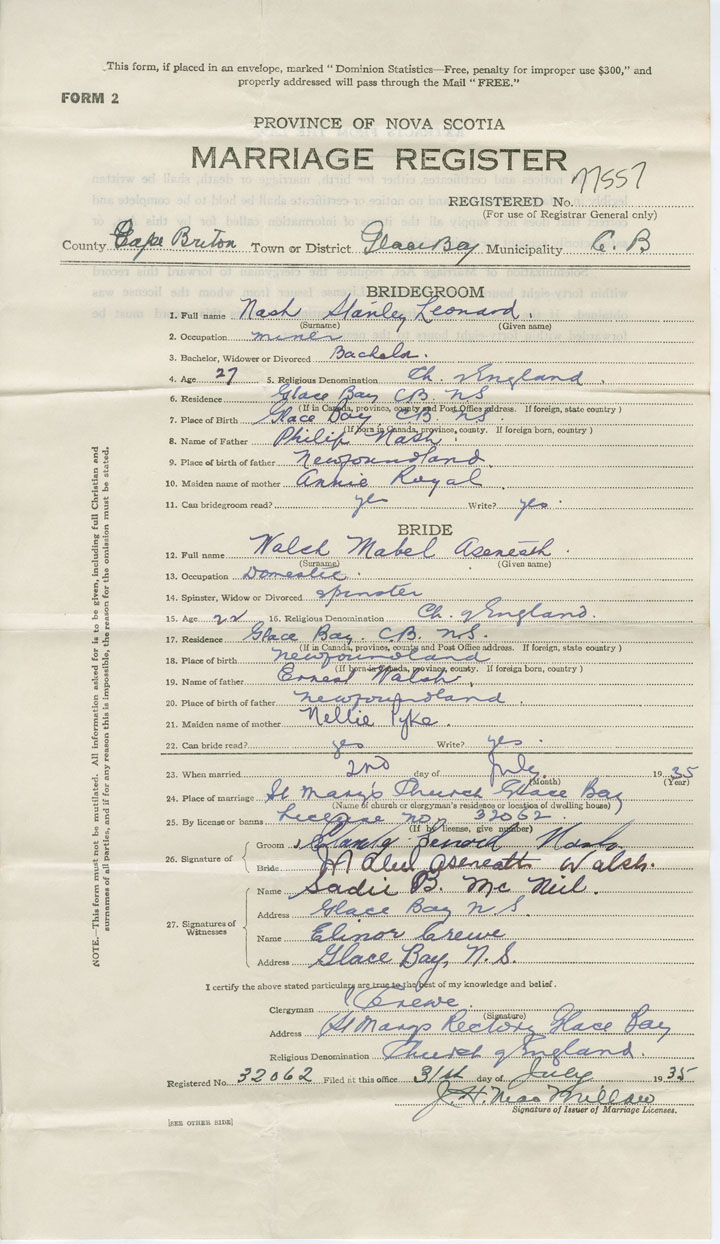 This form, if placed in an envelope, marked "Dominion Statistics—Free, penalty for improper use $300," and
properly addressed will pass through the Mail "FREE."
FORM 2
PROVINCE OF NOVA SCOTIA
MARRIAGE REGISTER
77557
REGISTERED No.
(For use of Registrar General only)
County Cape Breton Town or District Glace Bay Municipality C. B
BRIDEGROOM
1. Full name Nash Stanley Leonard.
(Surname) (Given name)
2. Occupation miner
3. Bachelor, Widower or Divorced Bachelor.
4. Age 27 5. Religious Denomination Ch. of England
6. Residence Glace Bay CB. NS
(If in Canada, province, county and Post Office address. If foreign, state country)
7. Place of Birth Glace Bay CB. NS
(If born in Canada, province, county. If foreign born, country)
8. Name of Father Philip Nash.
9. Place of birth of father Newfoundland.
10. Maiden name of mother Annie Royal
11. Can bridegroom read? yes Write? yes.
BRIDE
12. Full name Walsh Mabel Aseneath.
(Surname) (Given name)
13. Occupation Domestic.
14. Spinster, Widow or Divorced spinster
15. Age 22 16. Religious Denomination Ch. of England.
17. Residence Glace Bay. CB. NS.
(If in Canada, province, county and Post Office address. If foreign, state country)
18. Place of birth Newfoundland
(If born in Canada, province, county. If foreign born, country)
19. Name of father Ernest Walsh
20. Place of birth of father Newfoundland.
21. Maiden name of mother Nellie Pyke.
22. Can bride read? yes Write? yes.
23. When married 2nd day of July. 1935
(Month) (Year)
24. Place of marriage St Mary's Church Glace Bay
(Name of church or clergyman's residence or location of dwelling house)
25. By license or banns License no. 32062.
(If by license, give number)
26. Signature of
Groom Nash
Bride Aseneath Walsh.
27. Signatures of Witnesses
Name Sadie B. Mc Neil.
Address Glace Bay N S.
Name Elinor Crewe
Address Glace Bay, N. S.
I certify the above stated particulars are true to the best of my knowledge and belief.
Clergyman Crewe.
(Signature)
Address St Marys Rectory Glace Bay
Religious Denomination Church of England.
Registered No. 32062 Filed at this office 31st day of July 1935
J. H. Mac
Signature of Issuer of Marriage Licenses.
[SEE OTHER SIDE]
NOTE.—This form must not be mutilated. All information asked for is to be given, including full Christian and
surnames of all parties, and if for any reason this is impossible, the reason for the omission must be stated.